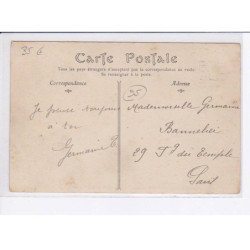 35 €
Carte Postale
Tous les pays étrangers n'acceptent pas la correspondance au recto.
Se renseigner à la poste.
Correspondance
Adresse
35
Je pense toujours
à toi
Germaine
Mademoiselle Germaine
89 Fg du Temple
Paris